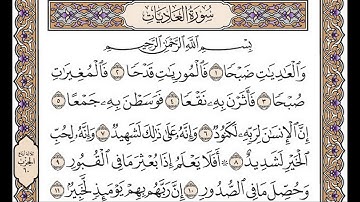 سُورَةُ الْعَادِيَاتِ
بِسْمِ اللَّهِ الرَّحْمَٰنِ الرَّحِيمِ
وَالْعَادِيَاتِ ضَبْحًا ١ فَالْمُورِيَاتِ قَدْحًا ٢ فَالْمُغِيرَاتِ
صُبْحًا ٣ فَأَثَرْنَ بِهِ نَقْعًا ٤ فَوَسَطْنَ بِهِ جَمْعًا ٥
إِنَّ الْإِنسَانَ لِرَبِّهِ لَكَنُودٌ ٦ وَإِنَّهُ عَلَىٰ ذَٰلِكَ لَشَهِيدٌ ٧ وَإِنَّهُ لِحُبِّ
الْخَيْرِ لَشَدِيدٌ ٨ أَفَلَا يَعْلَمُ إِذَا بُعْثِرَ مَا فِي الْقُبُورِ ٩
وَحُصِّلَ مَا فِي الصُّدُورِ ١٠ إِنَّ رَبَّهُم بِهِمْ يَوْمَئِذٍ لَّخَبِيرٌ ١١